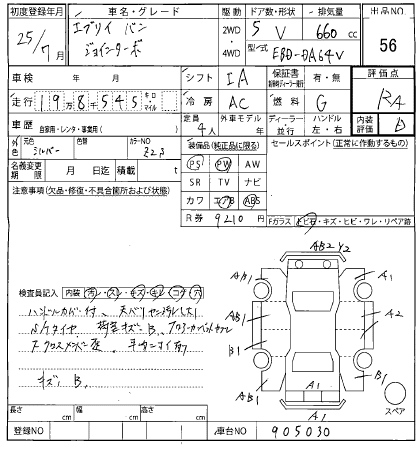 初度登録年月 車名・グレード 駆動 ドア数・形状 排気量 出品NO
25/7月 エブリイ バン 2WD 5 V 660cc 56
ジョインターボ 4WD 型式 EBD-DA64V
車検 年 月 シフト IA 保証書 有・無 評価点
走行 198千545 キロ・マイル 冷房 AC 燃料 G RA
車歴 自家用・レンタ・事業用( ) 定員 4人 外車モデル 年 ディーラー・並行 ハンドル 左・右 内装評価 D
外色 元色 シルバー 色替 カラーNO Z2S 装備品(純正品に限る) セールスポイント(正常に動作するもの)
名義変更期限 月 日迄 積載 t PS PW AW
注意事項(欠品・修復・不具合箇所および状態) SR TV ナビ
カワ エアB ABS
R券 9210円 Fガラス トビ石・キズ・ヒビ・ワレ・リペア跡
AB2 Y2
AB1 A1
AB1 A2
B1
AB1 B1
A1
A1
スペア
検査員記入 内装 汚レ・スレ・キズ・キレ・コゲ・穴
ハンドルカバー付
S/タイヤ
キズ、B.
長さ cm 幅 cm 高さ cm
登録NO 車台NO 905030